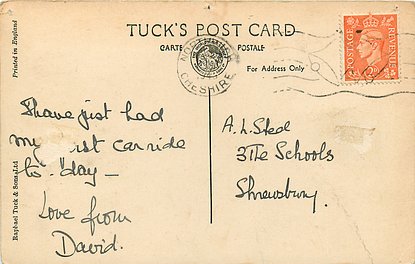 TUCK'S POST CARD
CARTE POSTALE
For Address Only
Printed in England
Raphael Tuck & Sons, Ltd
NORTHWICH
CHESHIRE
POSTAGE
REVENUE
I have just had
my rst car ride
to-day —
Love from
David.
A. L. Steel
3 The Schools
Shrewsbury.